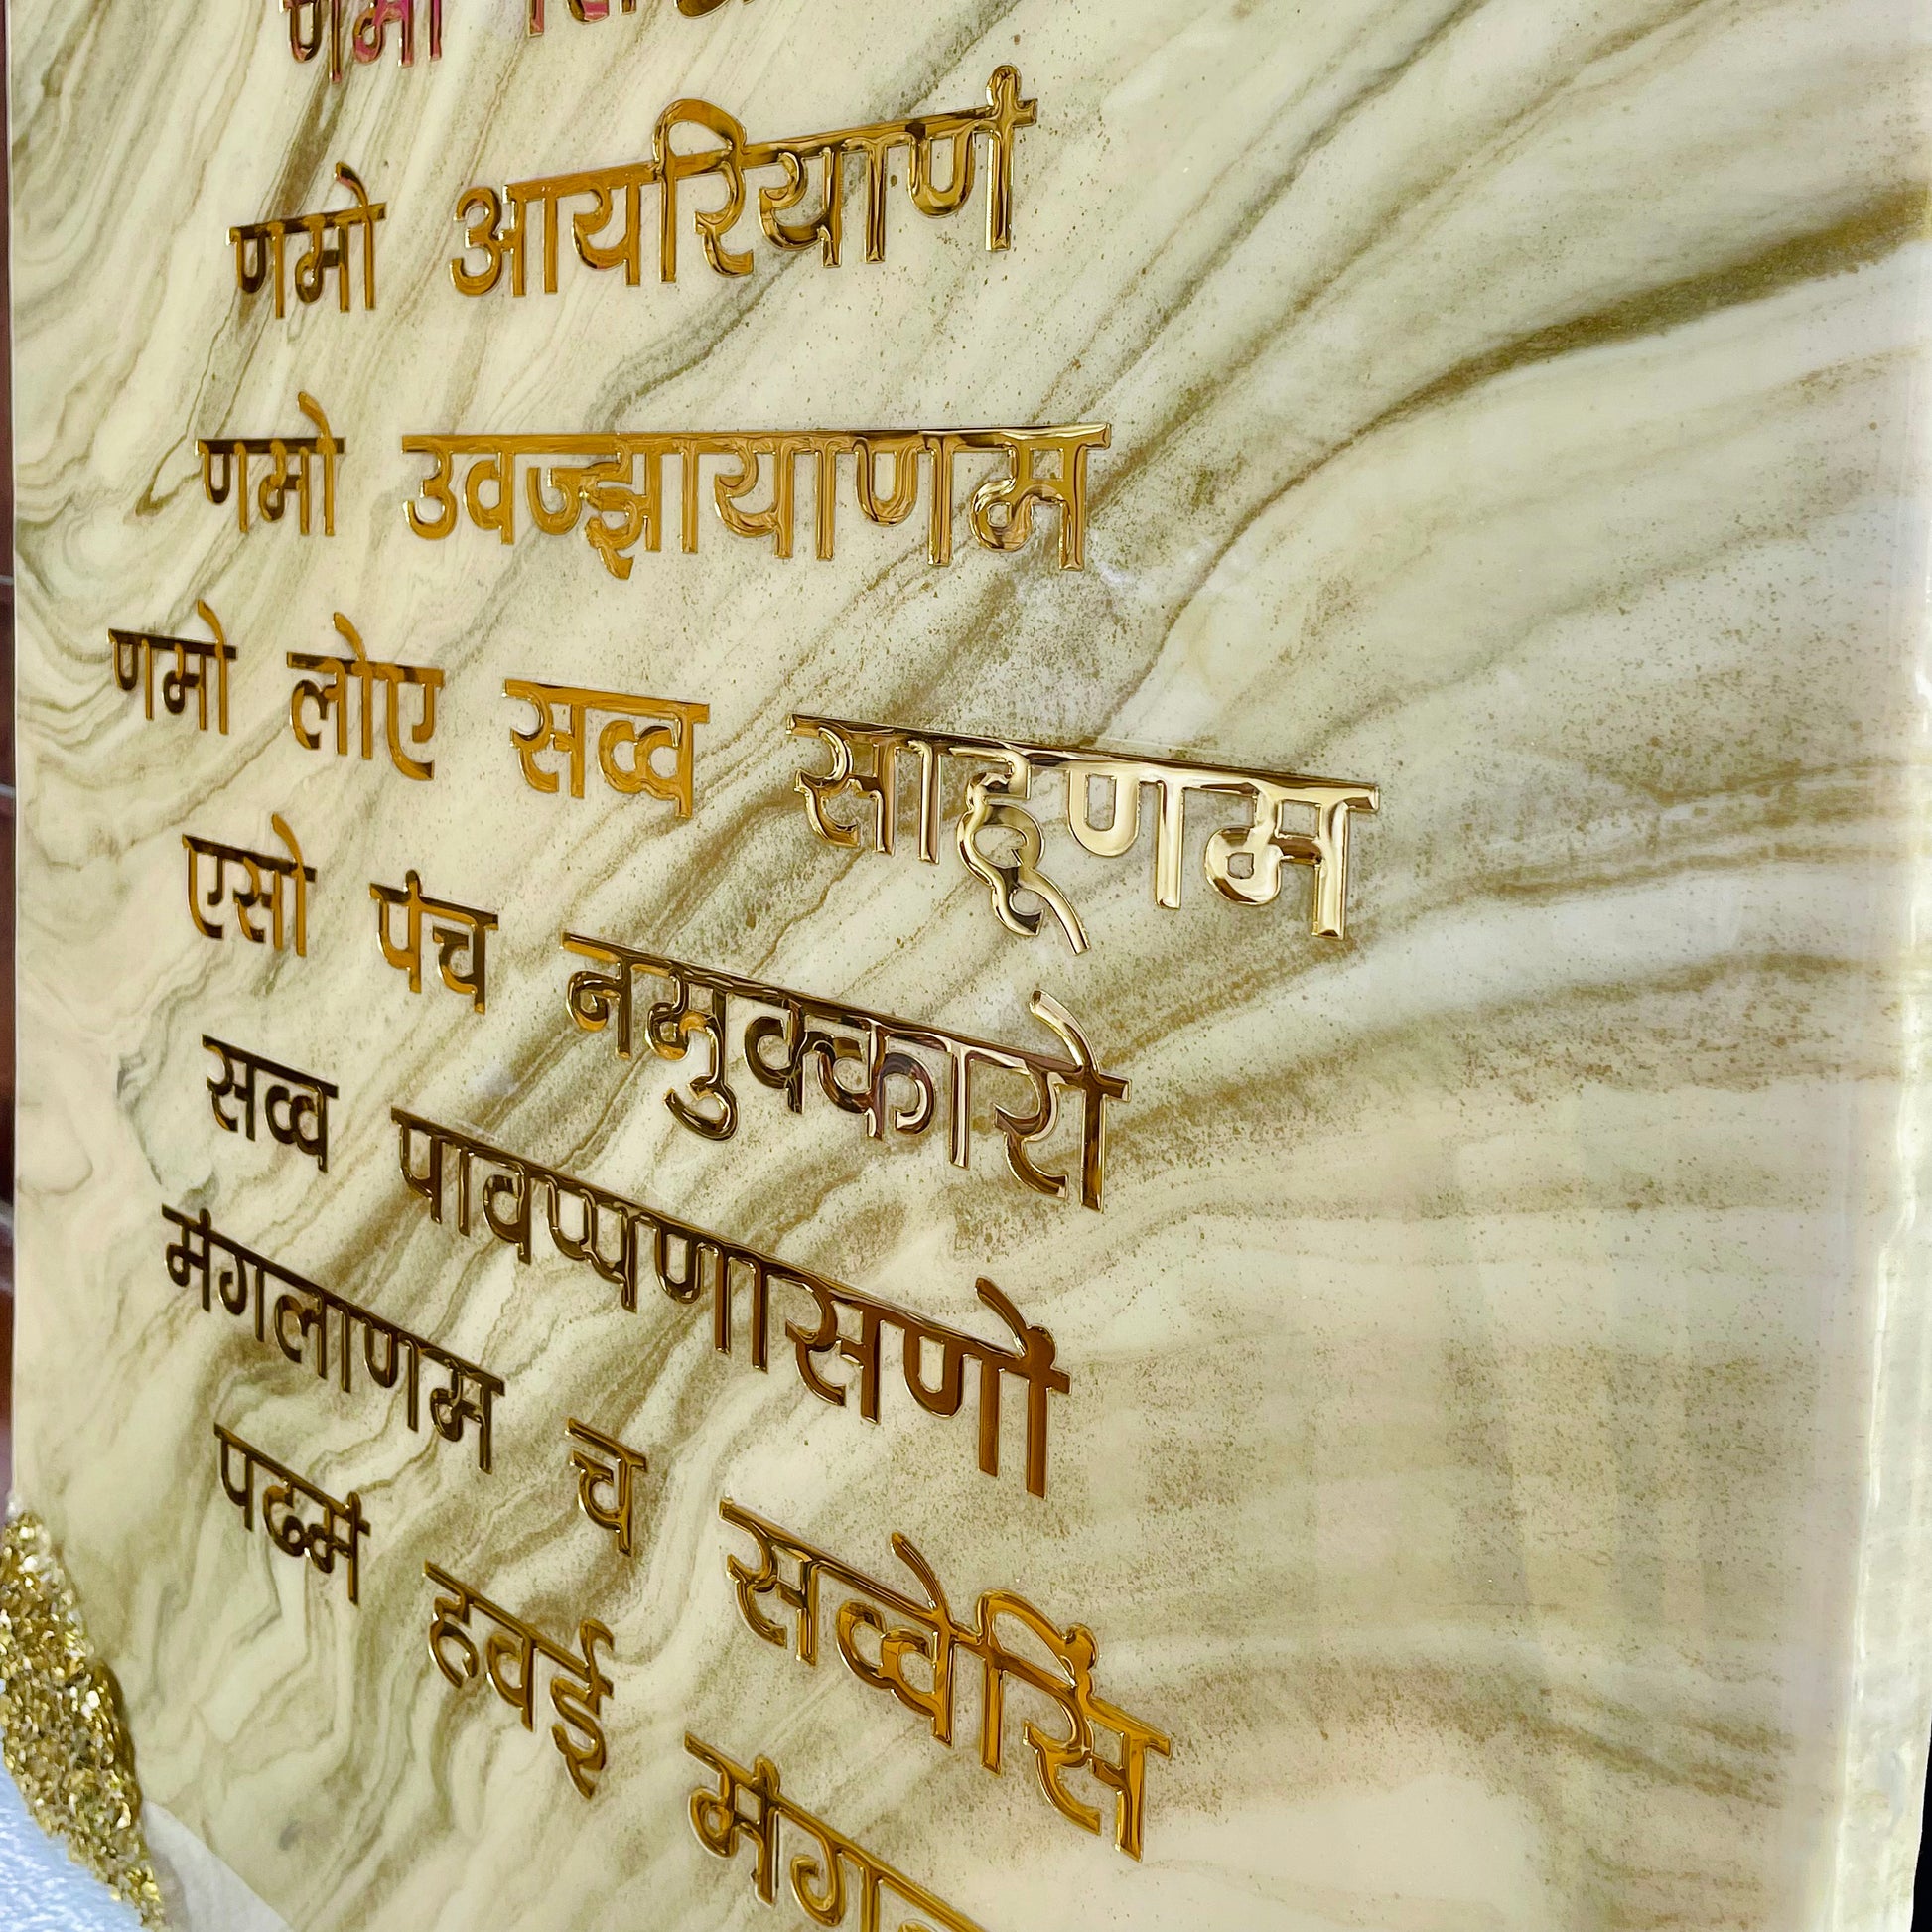 णमो
णमो आयरियाणं
णमो उवज्झायाणम
णमो लोए सव्व साहूणम
एसो पंच नमुक्कारो
सव्व पावप्पणासणो
मंगलाणम च सव्वेसिं
पढमं हवई